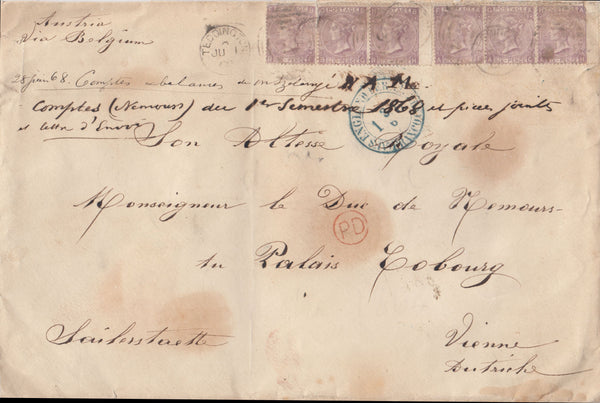 Austria
via Belgium
TEDDINGTON
28 juin 68. Comptes balances de
Comptes (Nemours) du 1er Semestre 1868 et pieces joints
et lettre d'Envoi
Son Altesse Royale
Monseigneur le Duc de Nemours-
PD
au Palais Cobourg
Seilerstaette
Vienne
Autriche